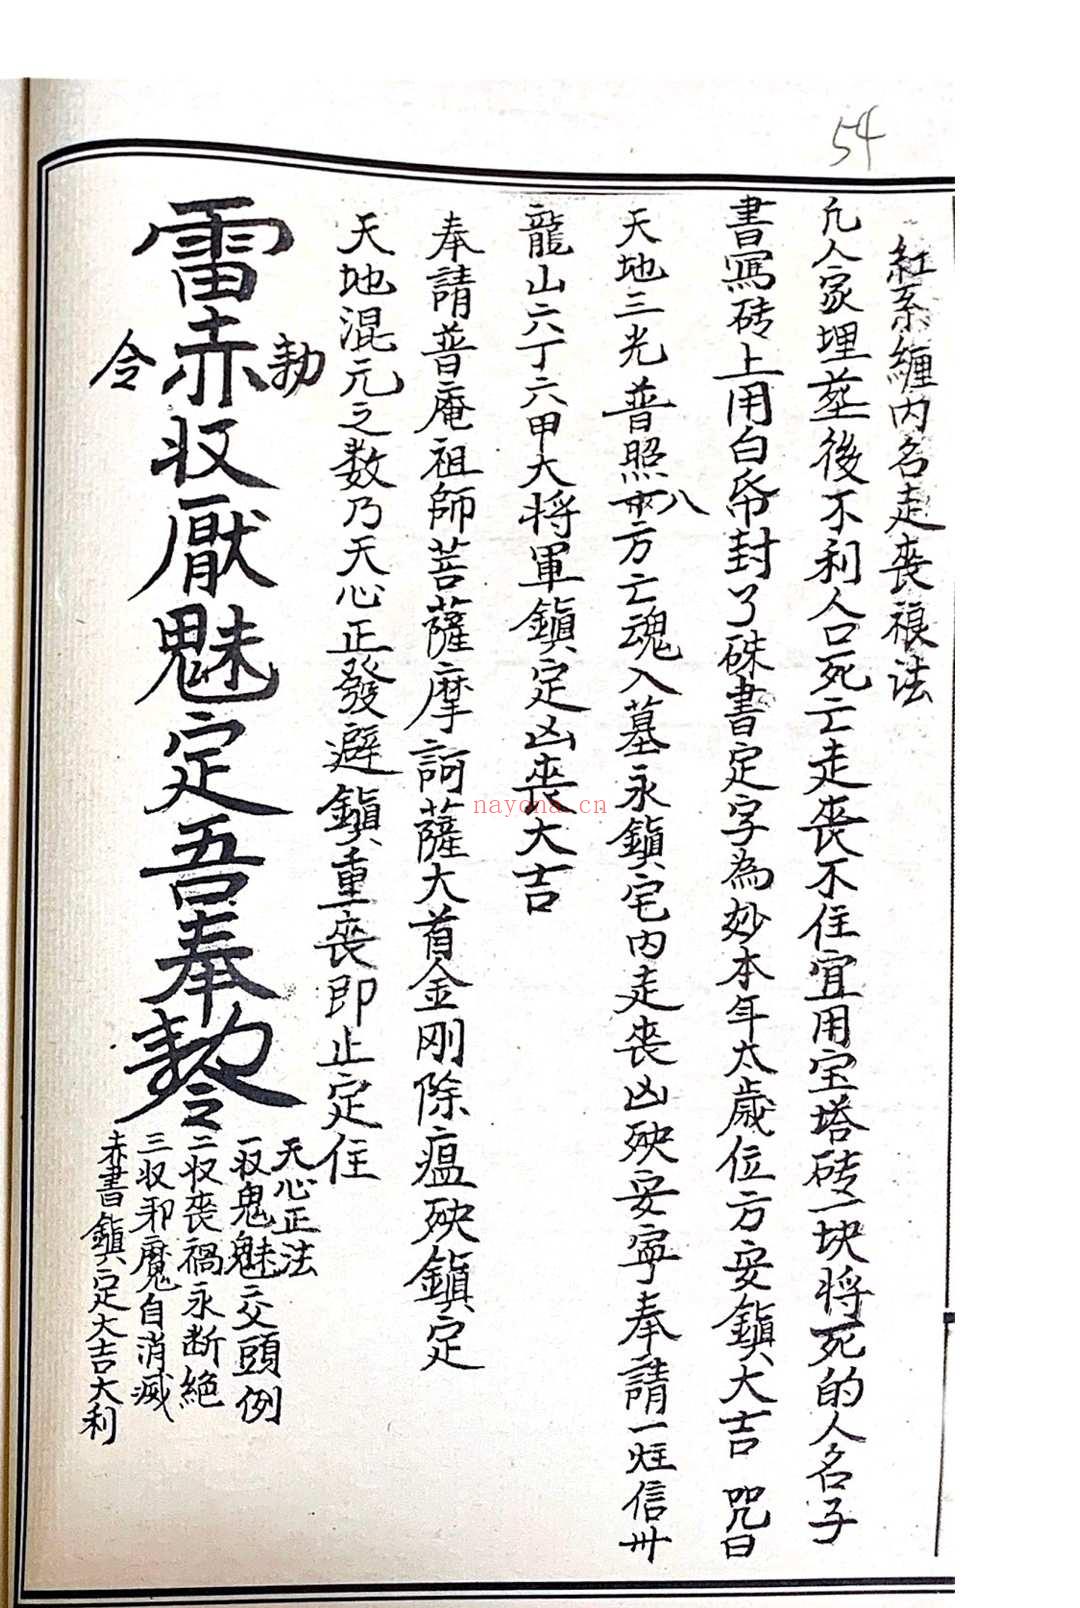 54
紅系纏內名走喪裉法
凡人家埋塟後不利人口死亡走喪不住宜用宝塔砖一块将死的人名子
書寫砖上用白帋封了硃書定字為妙本年太歲位方安鎮大吉 咒曰
天地三光普照八方亡魂入墓永鎮宅內走喪凶殃安寧奉請一炷信卅
龍山六丁六甲大将軍鎮定凶喪大吉
奉請普庵祖師菩薩摩訶薩大首金刚除瘟殃鎮定
天地混元之数乃天心正發避鎮重喪即止定住
勅
雷赤収厭魅定吾奉勅令
令
天心正法
一収鬼魅交頭例
二収喪禍永断絕
三収邪魔自消滅
赤書鎮定大吉大利
nayona.cn